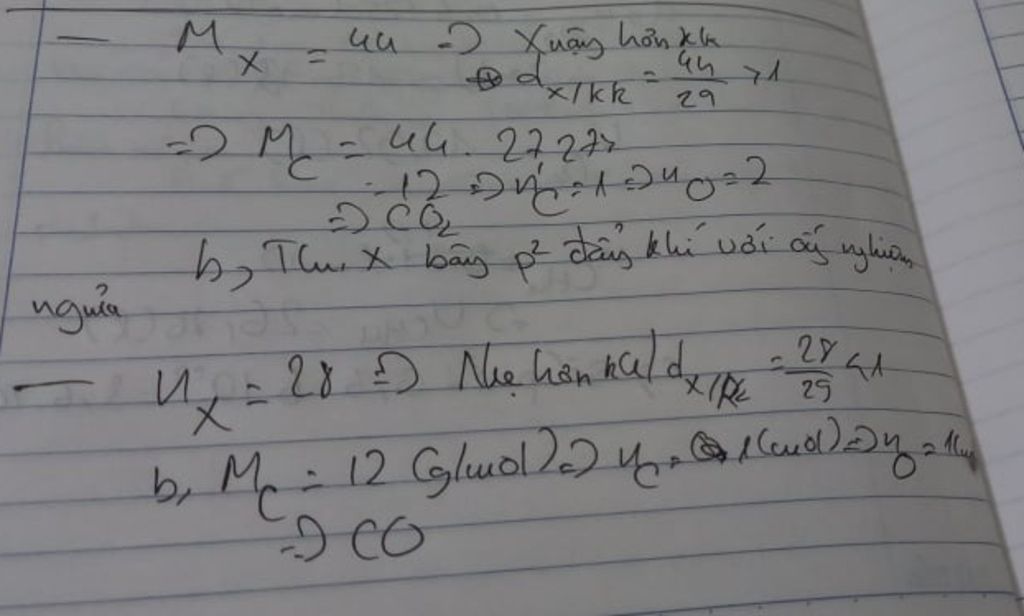 — M_X = 44 => X nặng hơn kk
⊕ d_X/kk = 44/29 > 1
=> M_C = 44 . 27,27%
= 12 => n_C = 1 => n_O = 2
=> CO₂
b, Thu X bằng p² đẩy khí với ống nghiệm
ngửa
— M_X = 28 => Nhẹ hơn kk / d_X/kk = 28/29 < 1
b, M_C = 12 (g/mol) => n_C = 1 (mol) => n_O = 1
=> CO